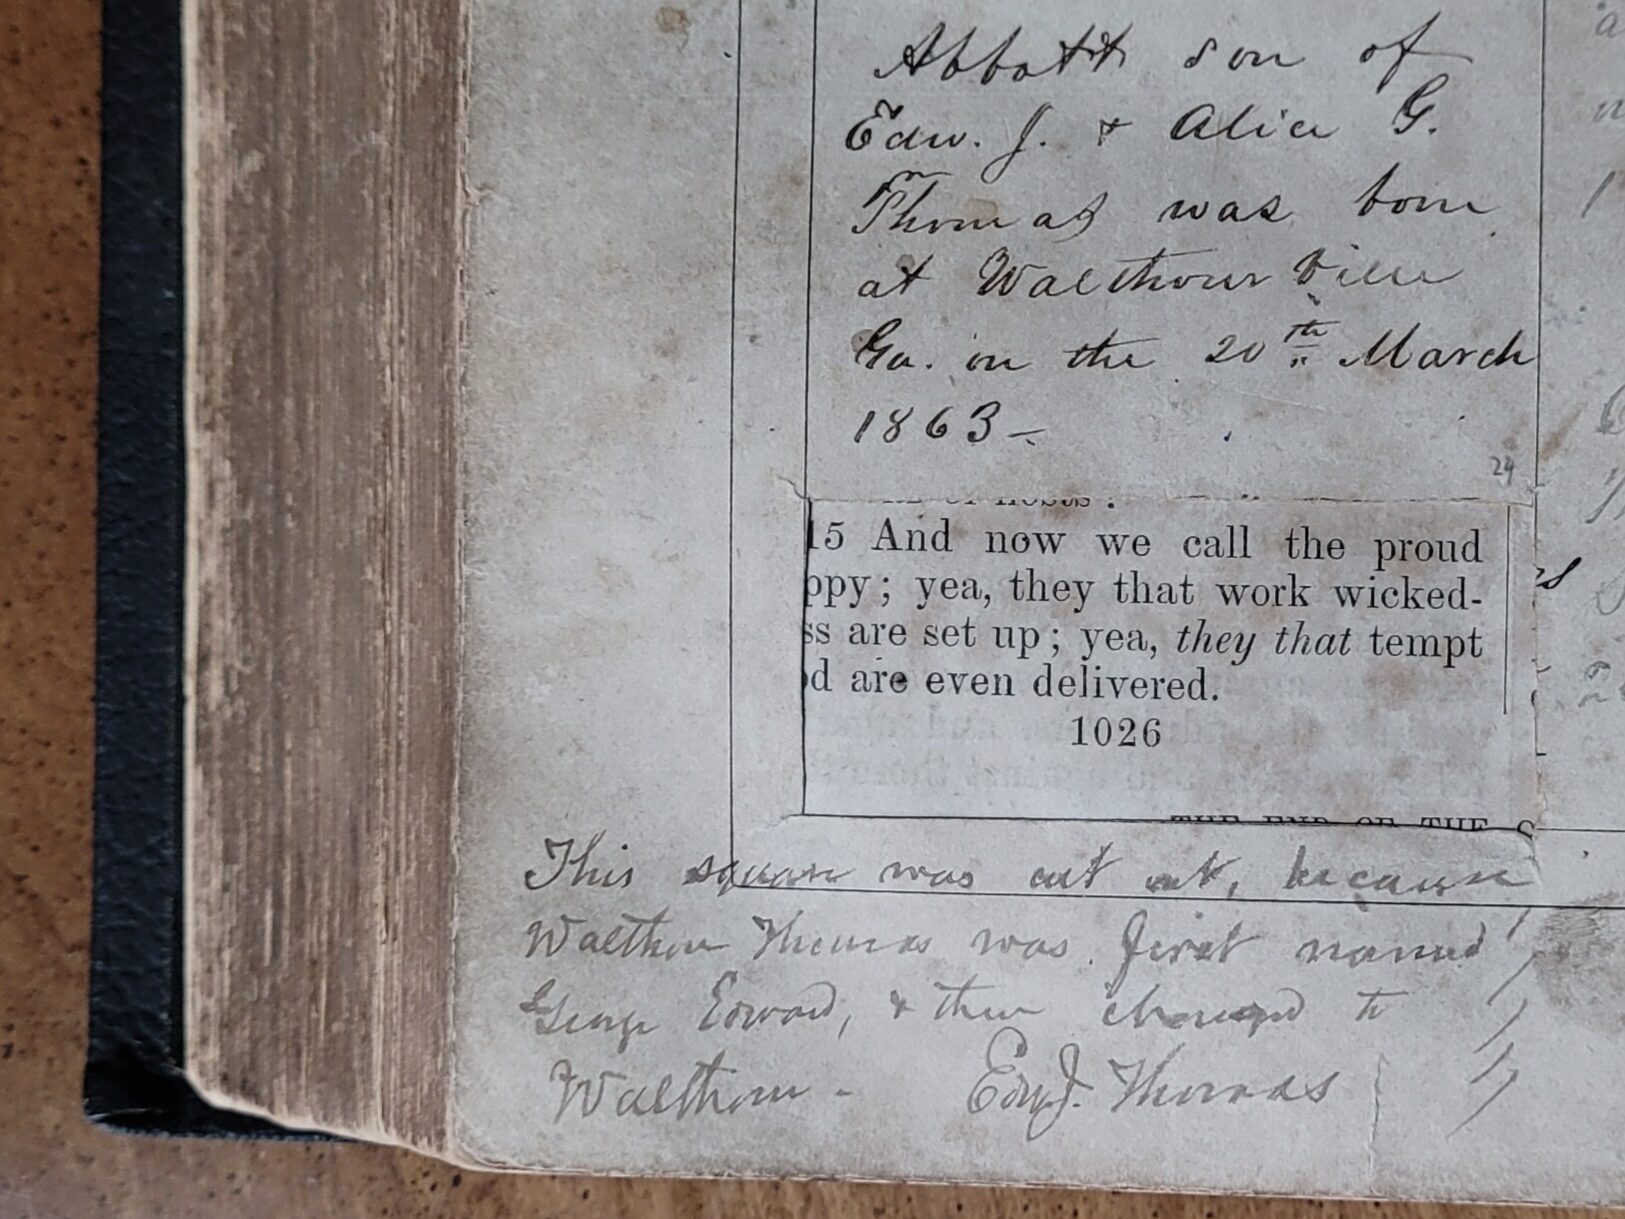 Abbott son of
Edw. J. & Alice G.
Thomas was born
at Walthourville
Ga. on the 20th March
1863 —
24
15 And now we call the proud
ppy; yea, they that work wicked-
ss are set up; yea, they that tempt
d are even delivered.
1026
THE END OF THE
This square was cut out, because
Walthour Thomas was first named
George Edward, & then changed to
Walthour - Edw J. Thomas